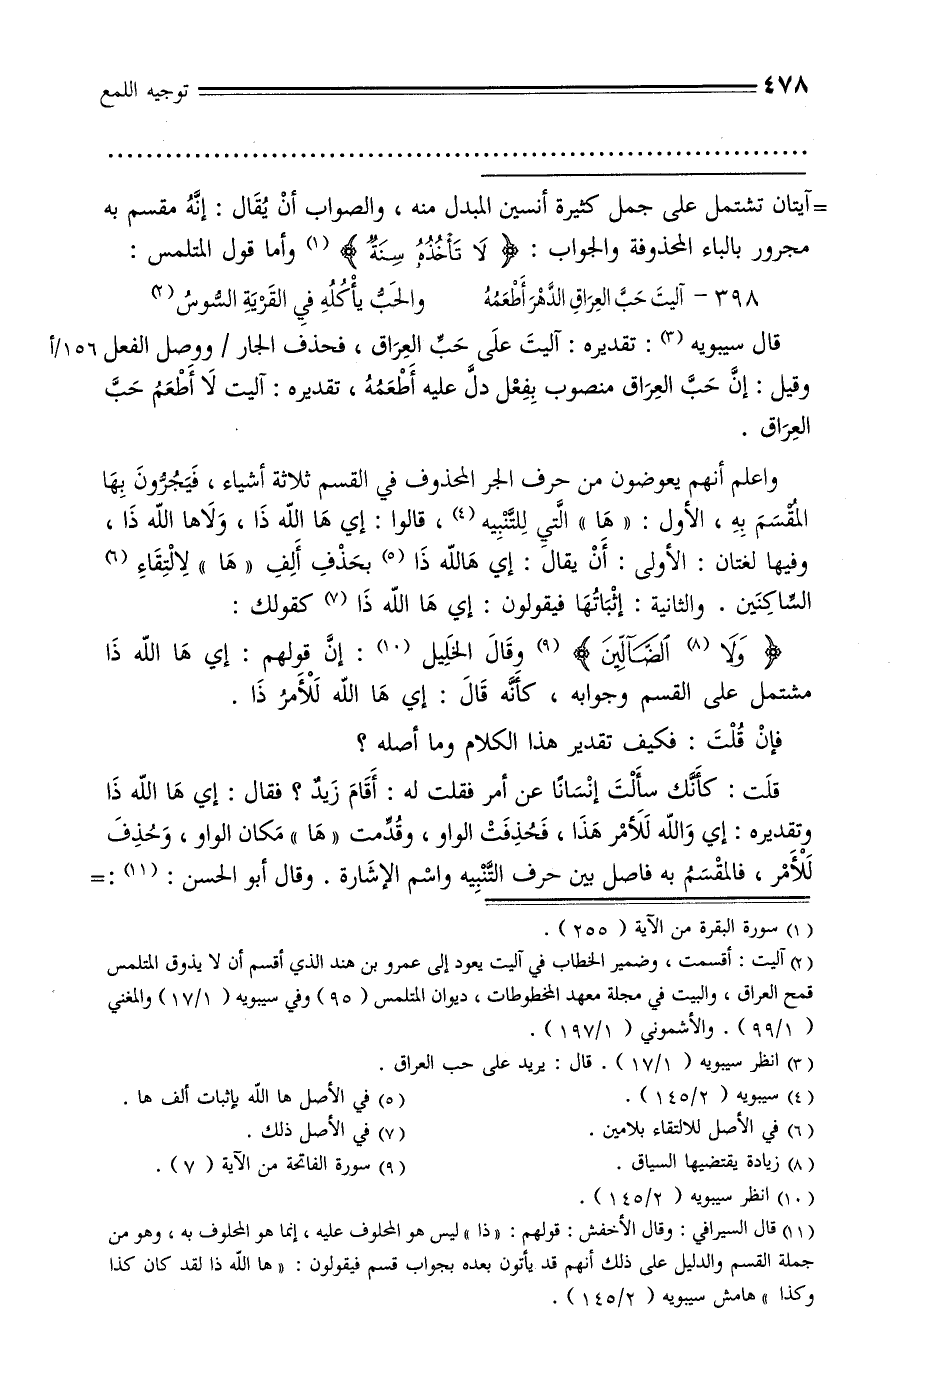 ٤٧٨ توجيه اللمع
= آيتان تشتمل على جمل كثيرة أنسين المبدل منه ، والصواب أنْ يُقَال : إنَّهُ مقسم به
مجرور بالباء المحذوفة والجواب : ﴿ لَا تَأْخُذُهُ سِنَةٌ ﴾ (١) وأما قول المتلمس :
٣٩٨ - آليتَ حَبَّ العِراقِ الدَّهْرَ أَطْعَمُهُ والحَبُّ يأْكُلُهُ فِي القَرْيَةِ السُّوسُ (٢)
قال سيبويه (٣) : تقديره : آليتَ علَى حَبِّ العِراق ، فحذف الجار / ووصل الفعل ١٥٦/أ
وقيل : إنَّ حَبَّ العِرَاق منصوب بِفِعْل دلَّ عليه أَطْعَمُهُ ، تقديره : آليت لَا أَطْعَمُ حَبَّ
العِرَاق .
واعلم أنهم يعوضون من حرف الجر المحذوف في القسم ثلاثة أشياء ، فَيَجُرُّونَ بِهَا
المُقْسَمَ بِهِ ، الأول : « هَا » الَّتِي لِلتَّنْبِيه (٤) ، قالوا : إي هَا اللّه ذَا ، وَلَاها اللّه ذَا ،
وفيها لغتان : الأولى : أَنْ يقالَ : إي هَاللّه ذَا (٥) بحَذْفِ أَلِفِ « هَا » لِالْتِقَاءِ (٦)
السَّاكِنَين . والثانية : إثْبَاتُهَا فيقولون : إي هَا اللّه ذَا (٧) كقولك :
﴿ وَلَا (٨) الضَّالِّينَ ﴾ (٩) وقَالَ الخَلِيل (١٠) : إنَّ قولهم : إي هَا اللّه ذَا
مشتمل على القسم وجوابه ، كأنَّه قَالَ : إي هَا اللّه لَلْأَمرُ ذَا .
فإنْ قُلْتَ : فكيف تقدير هذا الكلام وما أصله ؟
قلَت : كأَنَّك سأَلْتَ إنْسَانًا عن أمر فقلت له : أَقَامَ زَيدٌ ؟ فقال : إي هَا اللّه ذَا
وتقديره : إي وَاللّه لَلأمْر هَذَا ، فَحُذِفَتْ الواو ، وقُدِّمت « هَا » مَكان الواو ، وَحُذِفَ
لَلْأَمْر ، فالمقْسَمُ به فاصل بين حرف التَّنْبِيه واسْم الإشَارة . وقال أبو الحسن : (١١) : =
(١) سورة البقرة من الآية ( ٢٥٥ ) .
(٢) آليت : أقسمت ، وضمير الخطاب في آليت يعود إلى عمرو بن هند الذي أقسم أن لا يذوق المتلمس
قمح العراق ، والبيت في مجلة معهد المخطوطات ، ديوان المتلمس ( ٩٥ ) وفي سيبويه ( ١٧/١ ) والمغني
( ٩٩/١ ) . والأشموني ( ١٩٧/١ ) .
(٣) انظر سيبويه ( ١٧/١ ) . قال : يريد على حب العراق .
(٤) سيبويه ( ١٤٥/٢ ) . (٥) في الأصل ها اللّه بإثبات ألف ها .
(٦) في الأصل للالتقاء بلامين . (٧) في الأصل ذلك .
(٨) زيادة يقتضيها السياق . (٩) سورة الفاتحة من الآية ( ٧ ) .
(١٠) انظر سيبويه ( ١٤٥/٢ ) .
(١١) قال السيرافي : وقال الأخفش : قولهم : « ذا » ليس هو المحلوف عليه ، إنما هو المحلوف به ، وهو من
جملة القسم والدليل على ذلك أنهم قد يأتون بعده بجواب قسم فيقولون : « ها اللّه ذا لقد كان كذا
وكذا » هامش سيبويه ( ١٤٥/٢ ) .